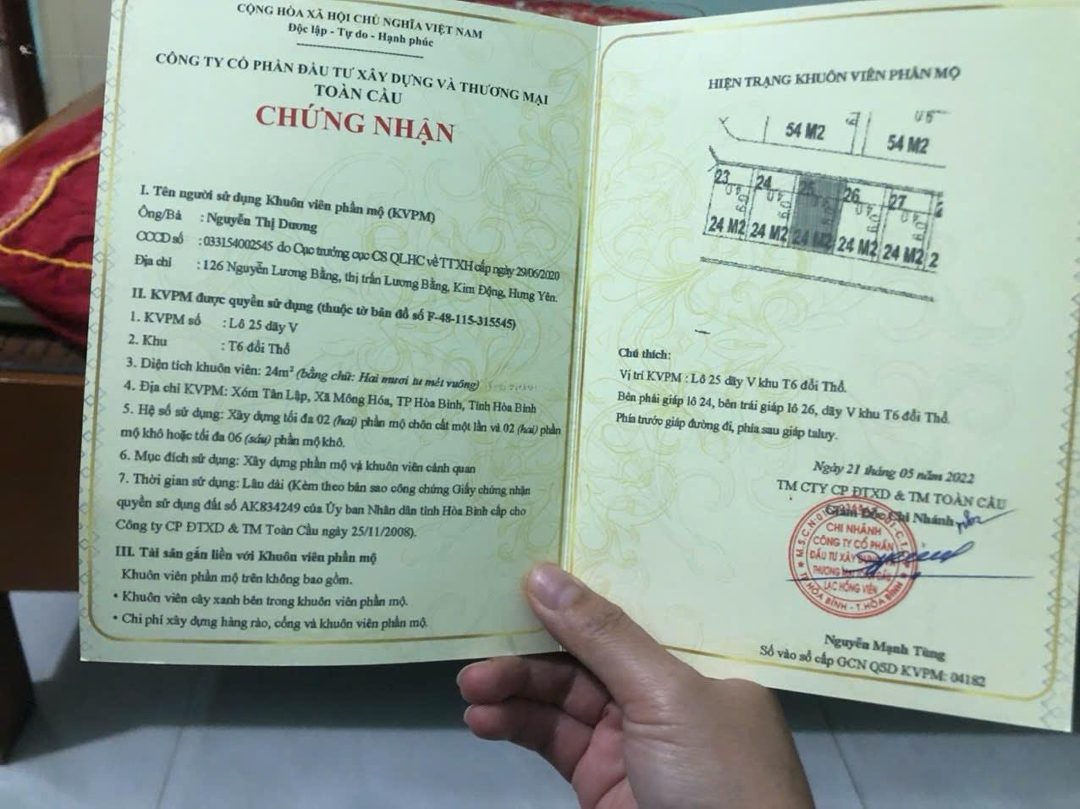 CỘNG HÒA XÃ HỘI CHỦ NGHĨA VIỆT NAM
Độc lập - Tự do - Hạnh phúc
CÔNG TY CỔ PHẦN ĐẦU TƯ XÂY DỰNG VÀ THƯƠNG MẠI
TOÀN CẦU
CHỨNG NHẬN
I. Tên người sử dụng Khuôn viên phần mộ (KVPM)
Ông/Bà : Nguyễn Thị Dương
CCCD số : 033154002545 do Cục trưởng cục CS QLHC về TTXH cấp ngày 29/06/2020
Địa chỉ : 126 Nguyễn Lương Bằng, thị trấn Lương Bằng, Kim Động, Hưng Yên.
II. KVPM được quyền sử dụng (thuộc tờ bản đồ số F-48-115-315545)
1. KVPM số : Lô 25 dãy V
2. Khu : T6 đồi Thổ
3. Diện tích khuôn viên: 24m² (bằng chữ: Hai mươi tư mét vuông)
4. Địa chỉ KVPM: Xóm Tân Lập, Xã Mông Hóa, TP Hòa Bình, Tỉnh Hòa Bình
5. Hệ số sử dụng: Xây dựng tối đa 02 (hai) phần mộ chôn cất một lần và 02 (hai) phần
mộ khô hoặc tối đa 06 (sáu) phần mộ khô.
6. Mục đích sử dụng: Xây dựng phần mộ và khuôn viên cảnh quan
7. Thời gian sử dụng: Lâu dài (Kèm theo bản sao công chứng Giấy chứng nhận
quyền sử dụng đất số AK834249 của Ủy ban Nhân dân tỉnh Hòa Bình cấp cho
Công ty CP ĐTXD & TM Toàn Cầu ngày 25/11/2008).
III. Tài sản gắn liền với Khuôn viên phần mộ
Khuôn viên phần mộ trên không bao gồm.
• Khuôn viên cây xanh bên trong khuôn viên phần mộ.
• Chi phí xây dựng hàng rào, cổng và khuôn viên phần mộ.
HIỆN TRẠNG KHUÔN VIÊN PHẦN MỘ
54 M2
54 M2
23 24 25 26 27
24 M2 24 M2 24 M2 24 M2 24 M2 2
Chú thích:
Vị trí KVPM : Lô 25 dãy V khu T6 đồi Thổ.
Bên phải giáp lô 24, bên trái giáp lô 26, dãy V khu T6 đồi Thổ.
Phía trước giáp đường đi, phía sau giáp taluy.
Ngày 21 tháng 05 năm 2022
TM CTY CP ĐTXD & TM TOÀN CẦU
Giám Đốc Chi Nhánh
CHI NHÁNH
CÔNG TY CỔ PHẦN
ĐẦU TƯ XÂY DỰNG
LẠC HỒNG VIÊN
TP. HÒA BÌNH - T. HÒA BÌNH
Nguyễn Mạnh Tùng
Số vào sổ cấp GCN QSD KVPM: 04182